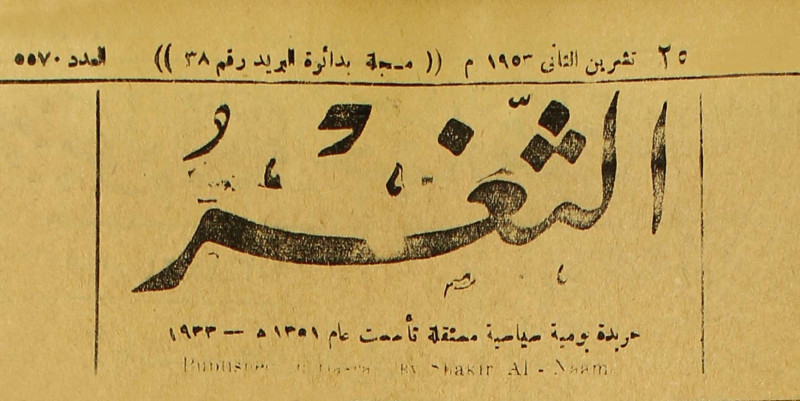 ٢٥ تشرين الثاني ١٩٥٣ م (( مسجلة بدائرة البريد رقم ٣٨ )) العدد ٥٥٧٠
الثَّغْرُ
جريدة يومية سياسية مستقلة تأسست عام ١٣٥١ ه — ١٩٣٣
Published By Shakir Al - Naama